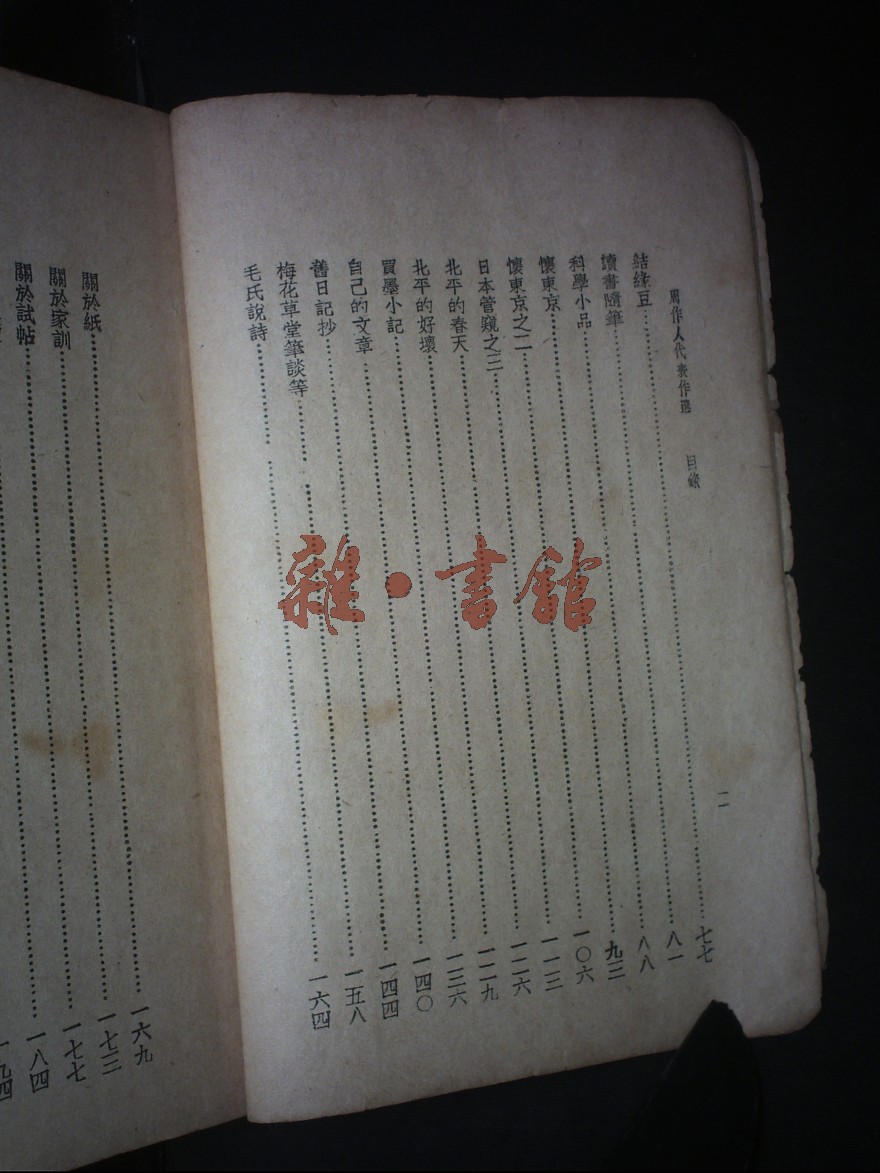 周作人代表作選 目錄
二
結緣豆……七七
讀書隨筆……八一
科學小品……八八
懷東京……九三
懷東京之二……一〇六
日本管窺之三……一一三
北平的春天……一二六
北平的好壞……一二九
買墨小記……一三六
自己的文章……一四〇
舊日記抄……一四四
梅花草堂筆談等……一五八
毛氏說詩……一六四
關於紙……一六九
關於家訓……一七三
關於試帖……一七七
一八四
一九四
雜·書館